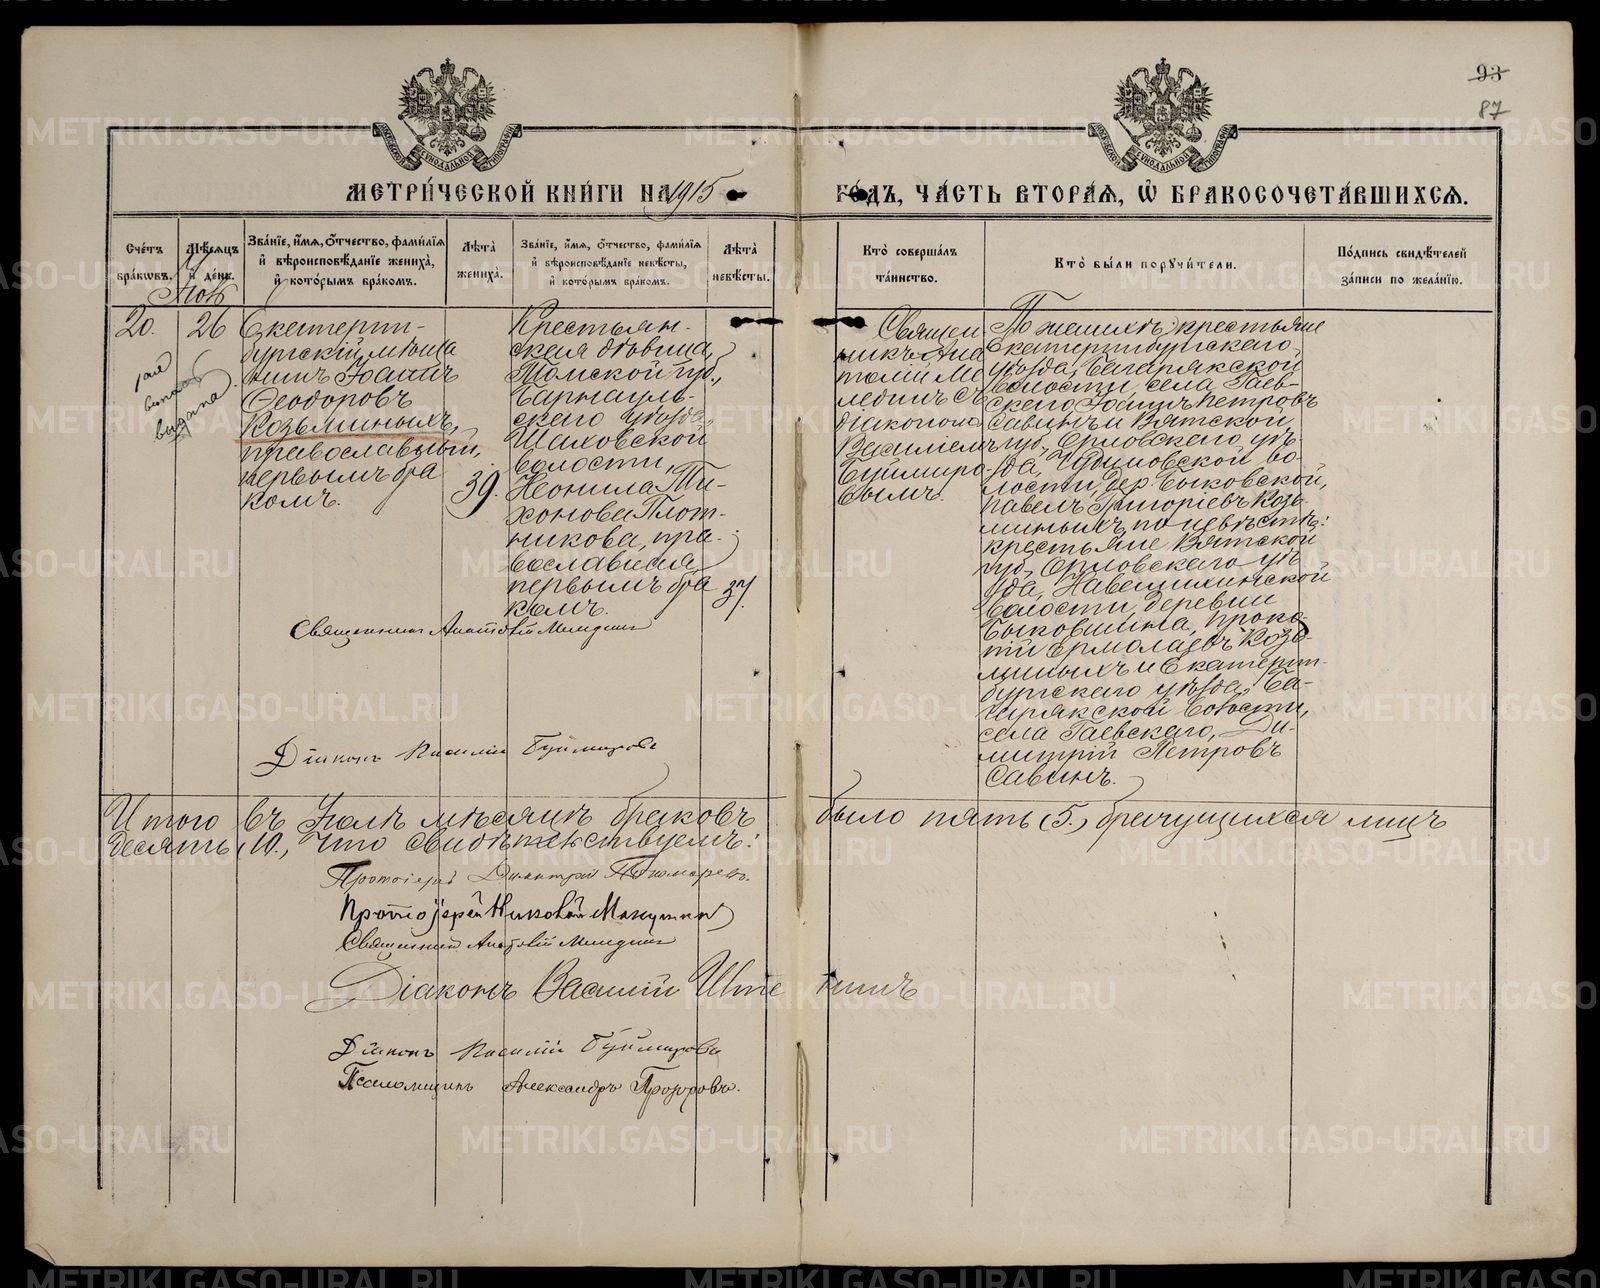 93
87
МЕТРИ́ЧЕСКОЙ КНИ́ГИ НА 1915 ГО́ДЪ, ЧА́СТЬ ВТОРА́Я, Ѿ БРАКОСОЧЕТА́ВШИХСЯ.
Сче́тъ бра́кωвъ.
Мѣ́сяцъ и҆ де́нь.
Зва́нїе, и҆́мя, ѻ҆́тчество, фами́лїя и҆ вѣроисповѣ́данїе жениха̀, и҆ кото́рымъ бра́комъ.
Лѣ́та жениха̀.
Зва́нїе, и҆́мя, ѻ҆́тчество, фами́лїя и҆ вѣроисповѣ́данїе невѣ́сты, и҆ кото́рымъ бра́комъ.
Лѣ́та невѣ́сты.
Кто̀ соверша́лъ та́инство.
Кто̀ бы́ли поручи́тели.
По́дпись свидѣ́телей за́писи по жела́нїю.
Іюль
20.
26
выдана
Екатерин-
бургскій мѣща
нинъ Іоаннъ
Ѳеодоровъ
Козьминыхъ,
православный,
первымъ бра
комъ.
39.
Крестьян-
ская дѣвица,
Томской губ.,
Барнауль-
скаго уѣзда
Шаховской
волости,
Неонила Ти-
хонова Плот-
никова, пра-
вославная,
первымъ бра
комъ.
37.
Священ
никъ Ана
толій Ме
лединъ съ
діакономъ
Василіемъ
Буймиро-
вымъ.
По женихѣ: крестьяне
Екатеринбургскаго
уѣзда, Багарякской
волости, села Гаев-
скаго Іоаннъ Петровъ
Савинъ и Вятской
губ., Орловскаго уѣ-
зда, волости, дер. Быковской,
Павелъ Григоріевъ Козь-
миныхъ, по невѣстѣ:
крестьяне Вятской
губ., Орловскаго уѣ
зда,
волости, деревни
Быковщина, Проко-
пій Ермолаевъ Козь-
миныхъ и Екатерин-
бургскаго уѣзда, Ба-
гарякской волости,
села Гаевскаго, Ди-
митрій Петровъ
Савинъ.
Священникъ Анатолій Меледин
Діаконъ Василій Буймировъ
Итого въ Іюлѣ мѣсяцѣ браковъ было пять (5.) брачущихся лицъ
десять (10., Что свидѣтельствуемъ:
Протоіерей Димитрій Пономаревъ.
Протоіерей Николай
Священникъ Анатолій Меледин
Діаконъ Василій
Діаконъ Василій Буймировъ
Псаломщикъ Александръ
METRIKI.GASO-URAL.RU